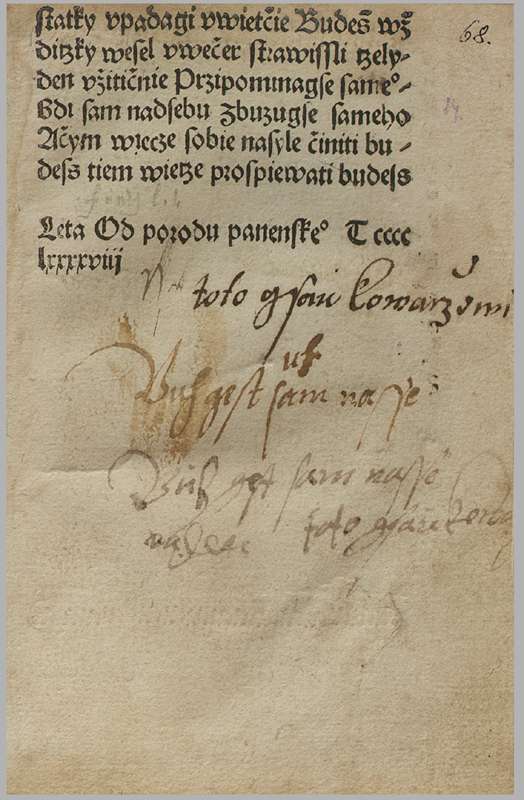 68.
statky vpadagi vwietčie Budeš wž
ditzky wesel vwečer strawissli tzely-
den vžitičnie Przipominagse same°-
Gdi sam nadsebu Zbuzugse sameho
Ačym wiecze sobie nasyle činiti bu-
dess tiem wietze prospiewati budess
Leta Od porodu panenske° T cccc
lxxxxviii
toto gsau kowaržowi
Buh gest sam nasse
Buh gest sam nasse
toto gsau